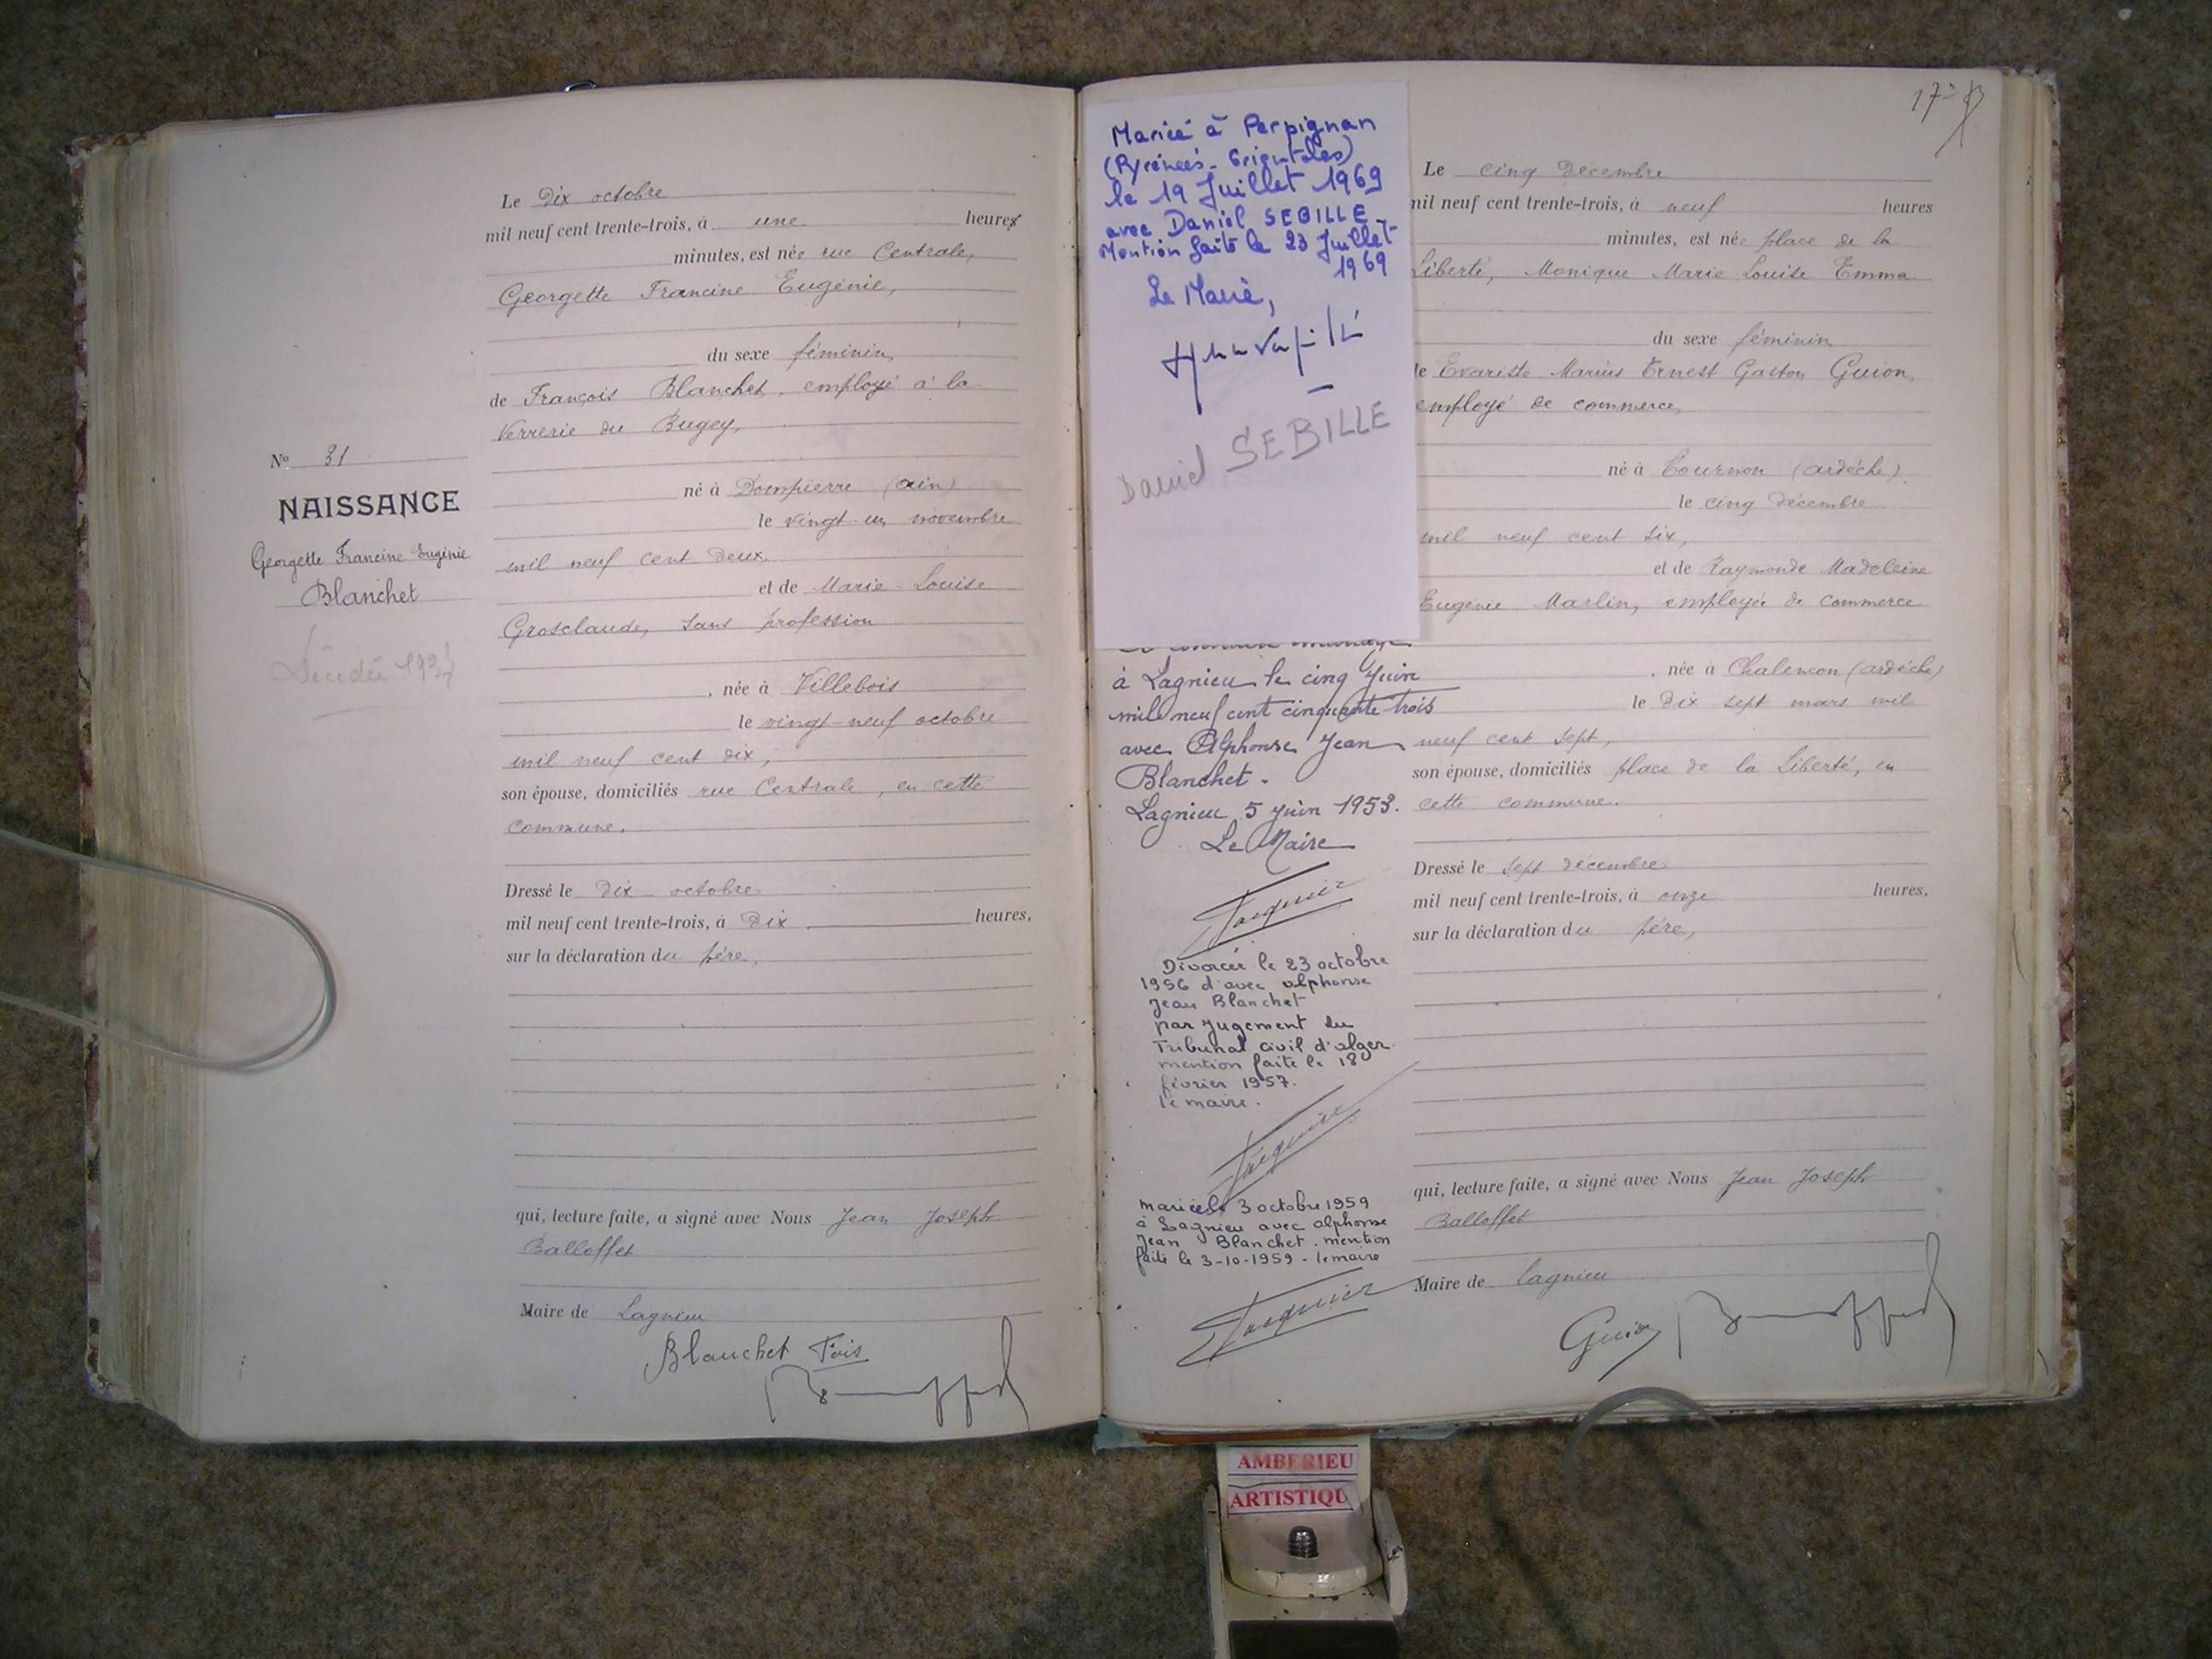 Le Dix octobre
mil neuf cent trente-trois, à une heures
minutes, est née rue Centrale,
Georgette Francine Eugénie,
du sexe féminin,
de François Blanchet, employé à la
Verrerie du Bugey,
né à Dompierre (ain)
le vingt un novembre
mil neuf cent deux,
et de Marie-Louise
Grosclaude, sans profession
, née à Villebois
le vingt-neuf octobre
mil neuf cent dix,
son épouse, domiciliés rue Centrale, en cette
commune.
Dressé le dix octobre
mil neuf cent trente-trois, à Dix heures,
sur la déclaration du père,
qui, lecture faite, a signé avec Nous Jean Joseph
Balloffet
Maire de Lagnieu
Blanchet Fois
No 31
NAISSANCE
Georgette Francine Eugénie
Blanchet
Décédée 1937
Mariée à Perpignan
(Pyrénées-Orientales)
le 19 Juillet 1969
avec Daniel SEBILLE
Mention faite le 23 Juillet
1969
Le Maire,
Daniel SEBILLE
à Lagnieu le cinq Juin
mil neuf cent cinquante trois
avec Alphonse Jean
Blanchet.
Lagnieu 5 Juin 1953.
Le Maire
Jacquier
Divorcée le 23 octobre
1956 d'avec alphonse
Jean Blanchet
par Jugement du
Tribunal civil d'alger.
mention faite le 18
février 1957.
le maire.
Jacquier
mariée le 3 octobre 1959
à Lagnieu avec alphonse
Jean Blanchet. mention
faite le 3-10-1959 - le maire
Jacquier
Le cinq décembre
mil neuf cent trente-trois, à neuf heures
minutes, est née place de la
Liberté, Monique Marie Louise Emma
du sexe féminin
de Evariste Marius Ernest Gaston Guion,
employé de commerce,
né à Tournon (ardèche).
le cinq décembre
mil neuf cent six,
et de Raymonde Madeleine
Eugénie Marlin, employée de commerce
, née à Chalencon (ardèche)
le dix sept mars mil
neuf cent sept,
son épouse, domiciliés place de la Liberté, en
cette commune.
Dressé le sept décembre
mil neuf cent trente-trois, à onze heures,
sur la déclaration du père,
qui, lecture faite, a signé avec Nous Jean Joseph
Balloffet
Maire de Lagnieu
Guion
AMBERIEU
ARTISTIQU